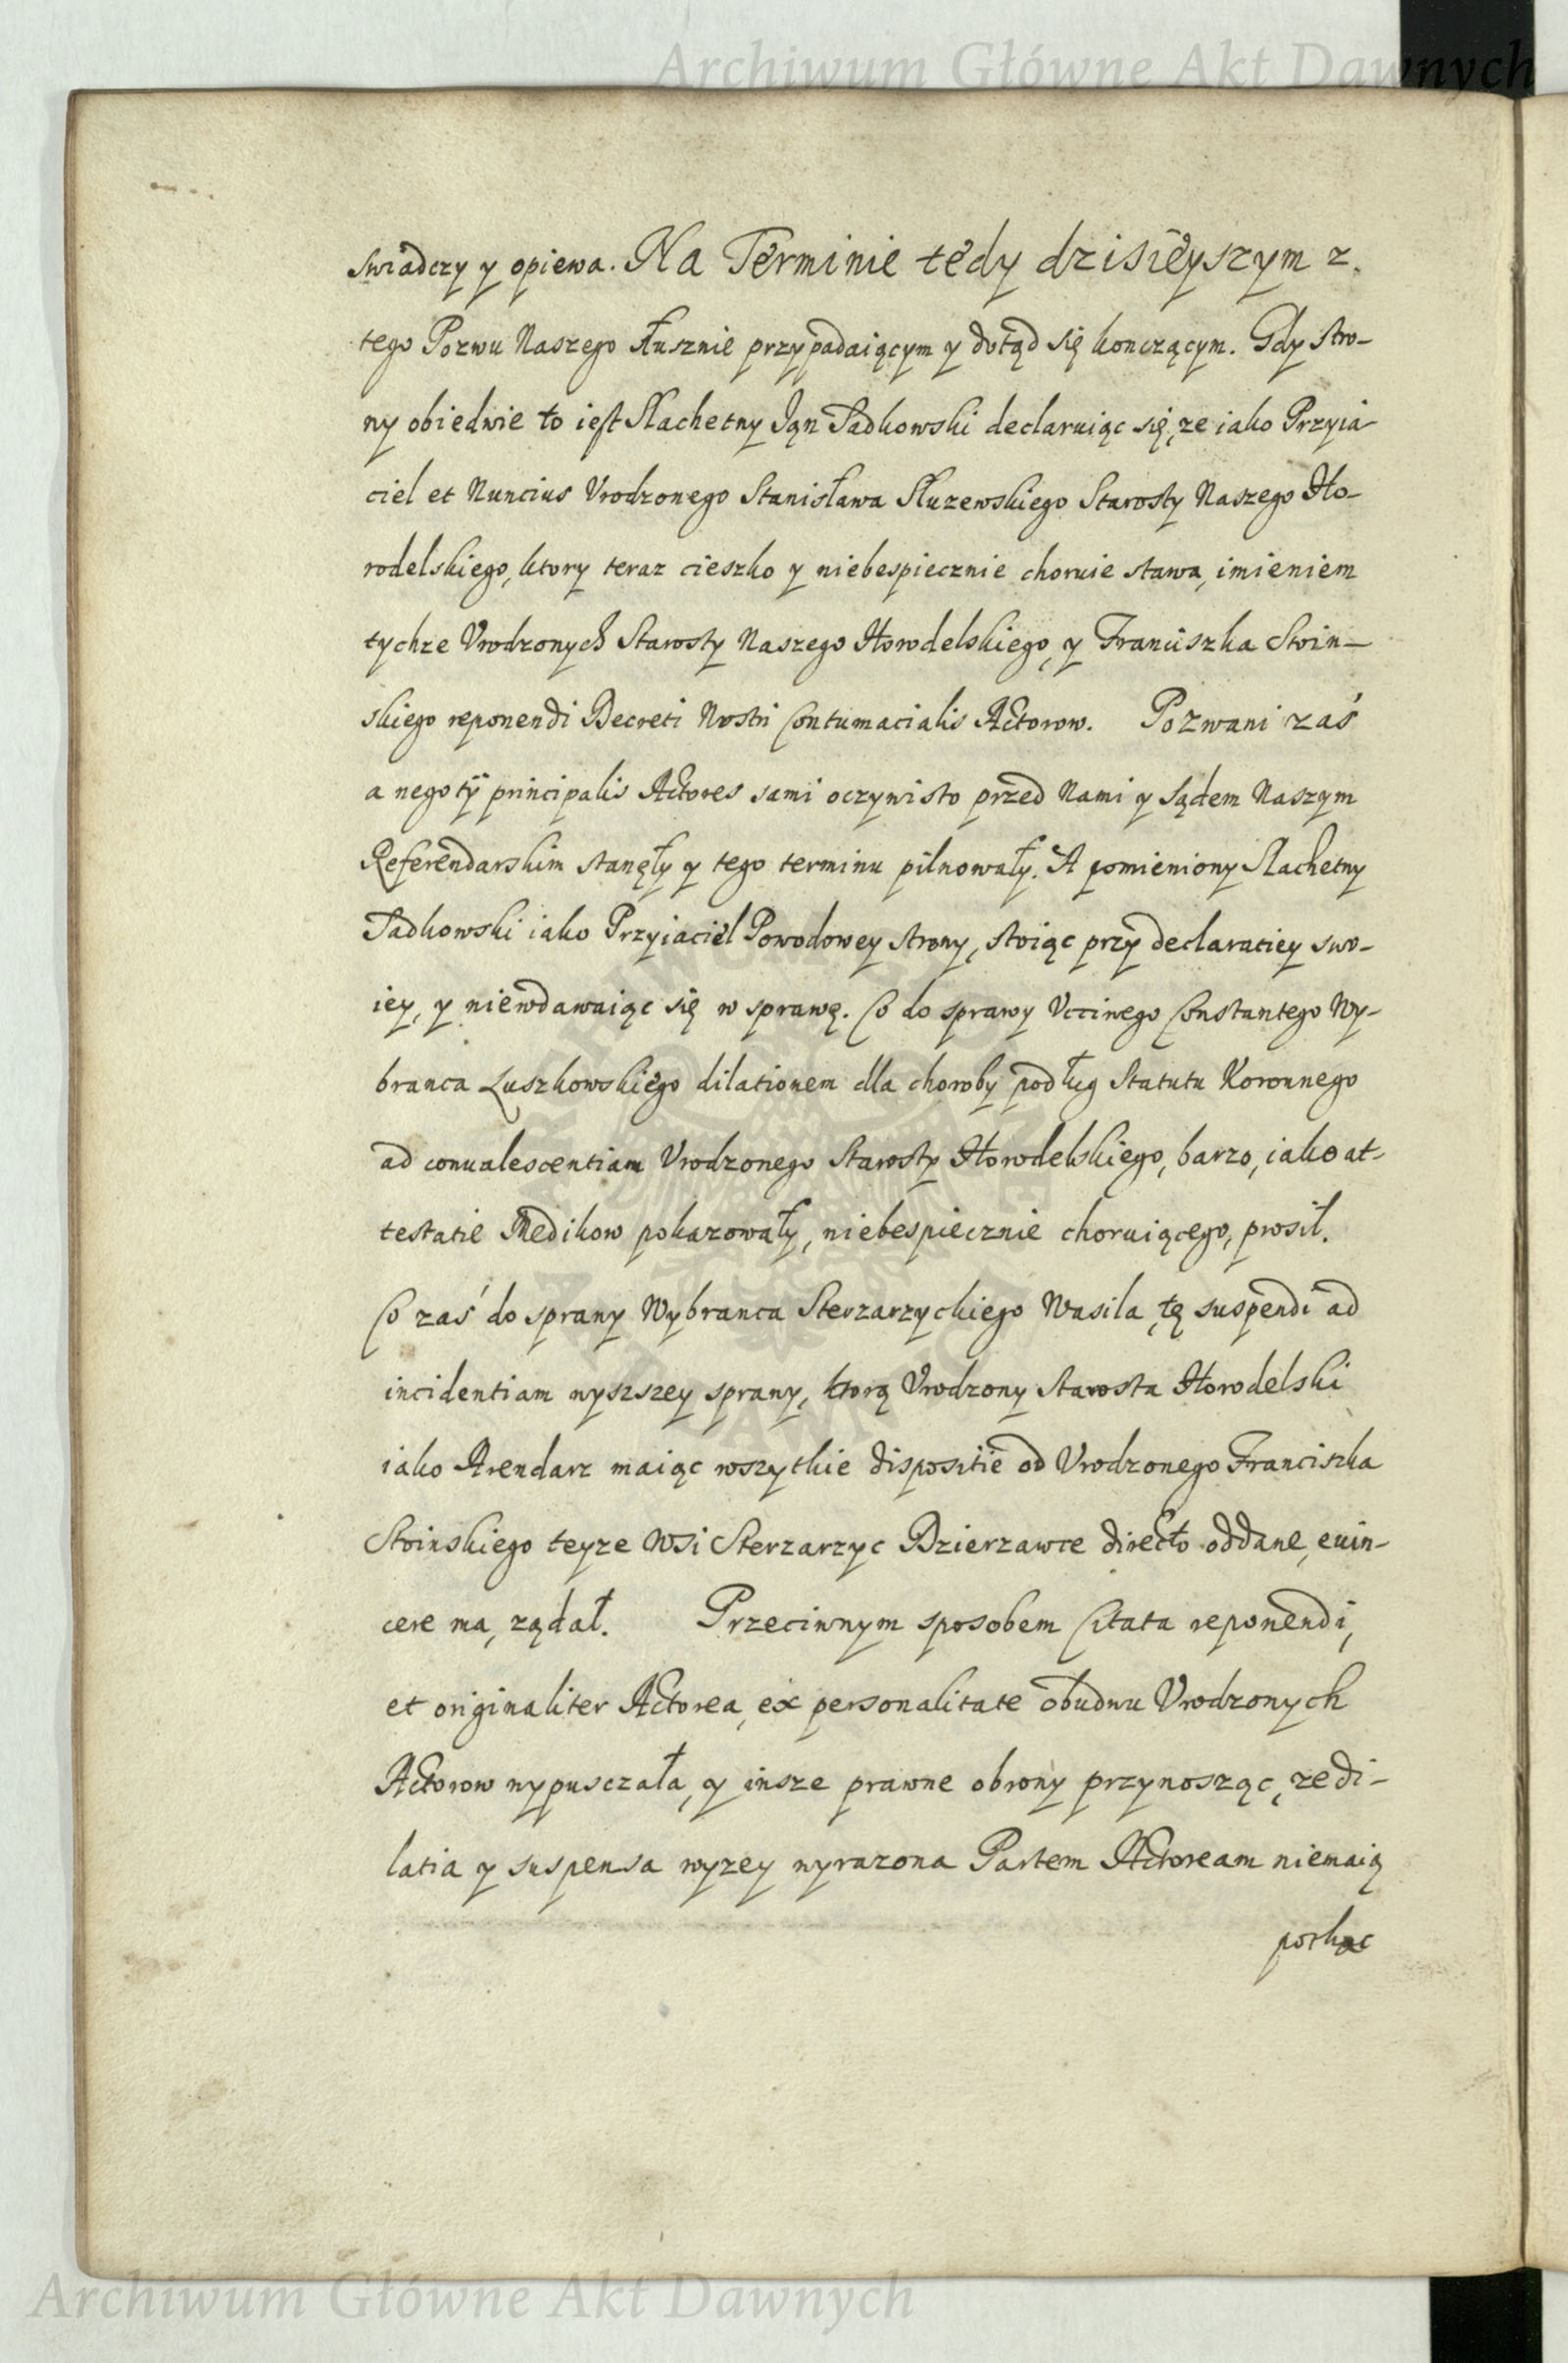 Archiwum Główne Akt Dawnych
swiadczy y opiewa. Na Terminie tedy dzisieyszym z
tego Pozwu Naszego słusznie przypadaiącym y dotąd się konczącym. Gdy stro-
ny obiedwie to iest Slachetny Jan Sadkowski declaruiąc się, ze iako Przyia-
ciel et Nuncius Vrodzonego Stanisława Sluzewskiego Starosty Naszego Ho-
rodelskiego, ktory teraz cieszko y niebespiecznie choruie stawa, imieniem
tychze Vrodzonych Starosty Naszego Horodelskiego, y Franciszka Stoin-
skiego reponendi Decreti Nostri Contumacialis Actorow. Pozwani zaś
a negotÿ principalis Actores sami oczywisto przed Nami y Sądem Naszym
Referendarskim stanęły y tego terminu pilnowały. A pomieniony Slachetny
Sadkowski iako Przyiaciel Powodowey strony, stoiąc przy declaratiey swo-
iey, y niewdawaiąc się w sprawę. Co do sprawy Vccinego Constantego Wy-
branca Luszkowskiego dilationem dla choroby podług Statutu Koronnego
ad conualescentiam Vrodzonego Starosty Horodelskiego, barzo, iako at-
testatie Medikow pokazowały, niebespiecznie choruiącego, prosił.
Co zaś do sprawy Wybranca Sterzarzyckiego Wasila, tę suspendi ad
incidentiam wyszszey sprawy, ktorą Vrodzony Starosta Horodelski
iako Arendarz maiąc wszytkie dispositie od Vrodzonego Franciszka
Stoinskiego teyze Wsi Sterzarzyc Dzierzawce directo oddane, euin-
cere ma, ządał. Przeciwnym sposobem Citata reponendi,
et originaliter Actorea, ex personalitate obudwu Vrodzonych
Actorow wypusczała, y insze prawne obrony przynosząc, ze di-
latia y suspensa wyzey wyrazona Partem Actoream niemaią
Archiwum Główne Akt Dawnych